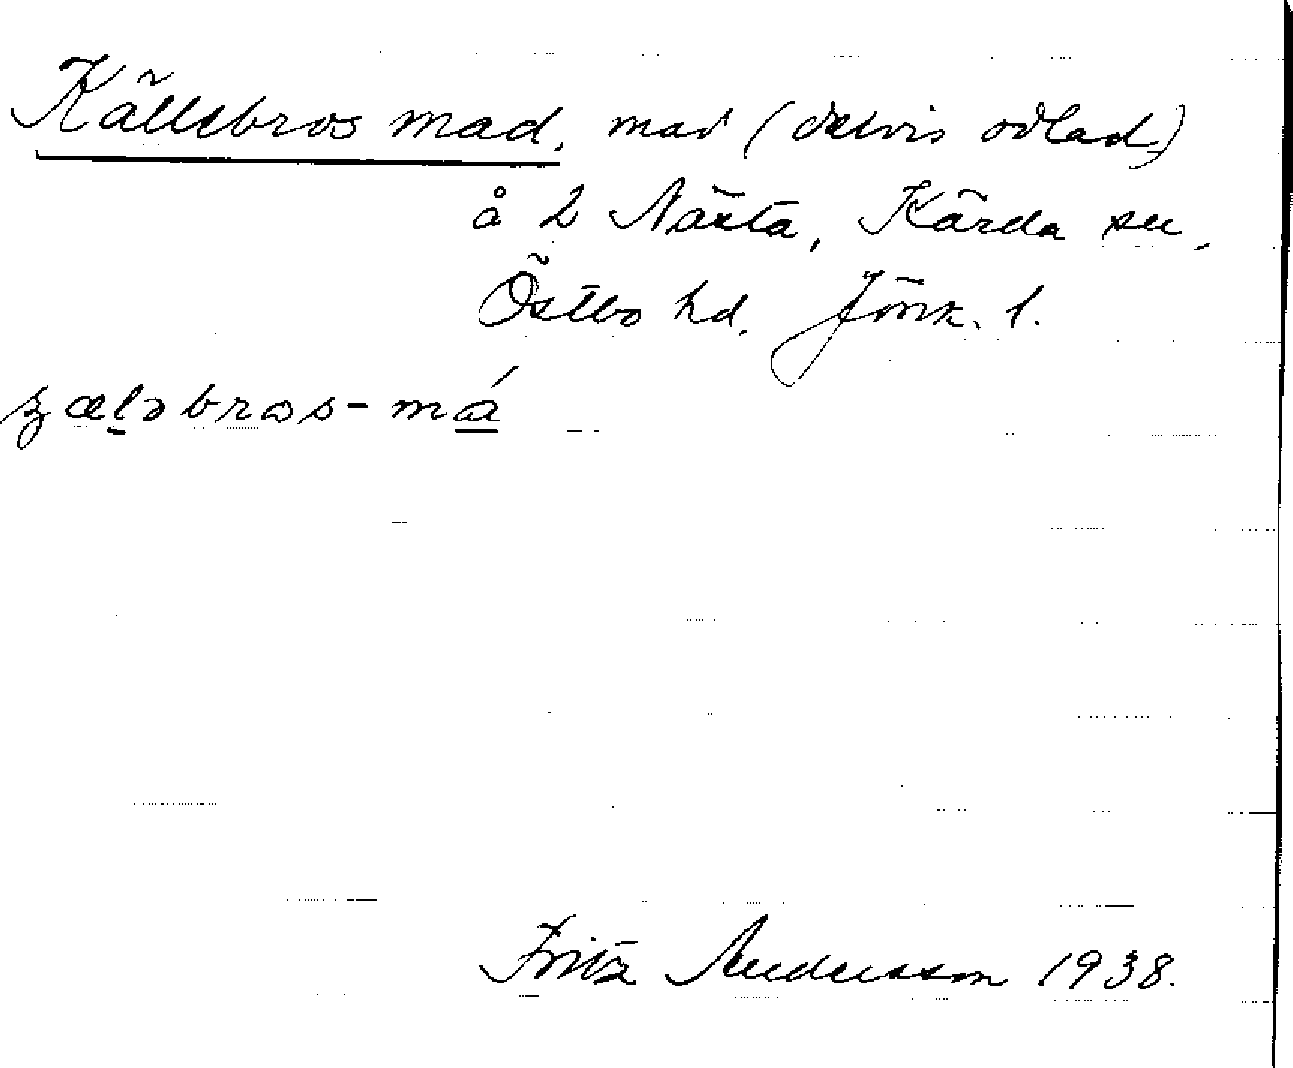 Källebros mad, mad (delvis odlad)
å 2 Näxta, Kärda sn,
Östbo hd, Jönk. l.
Fritz Andersson 1938.